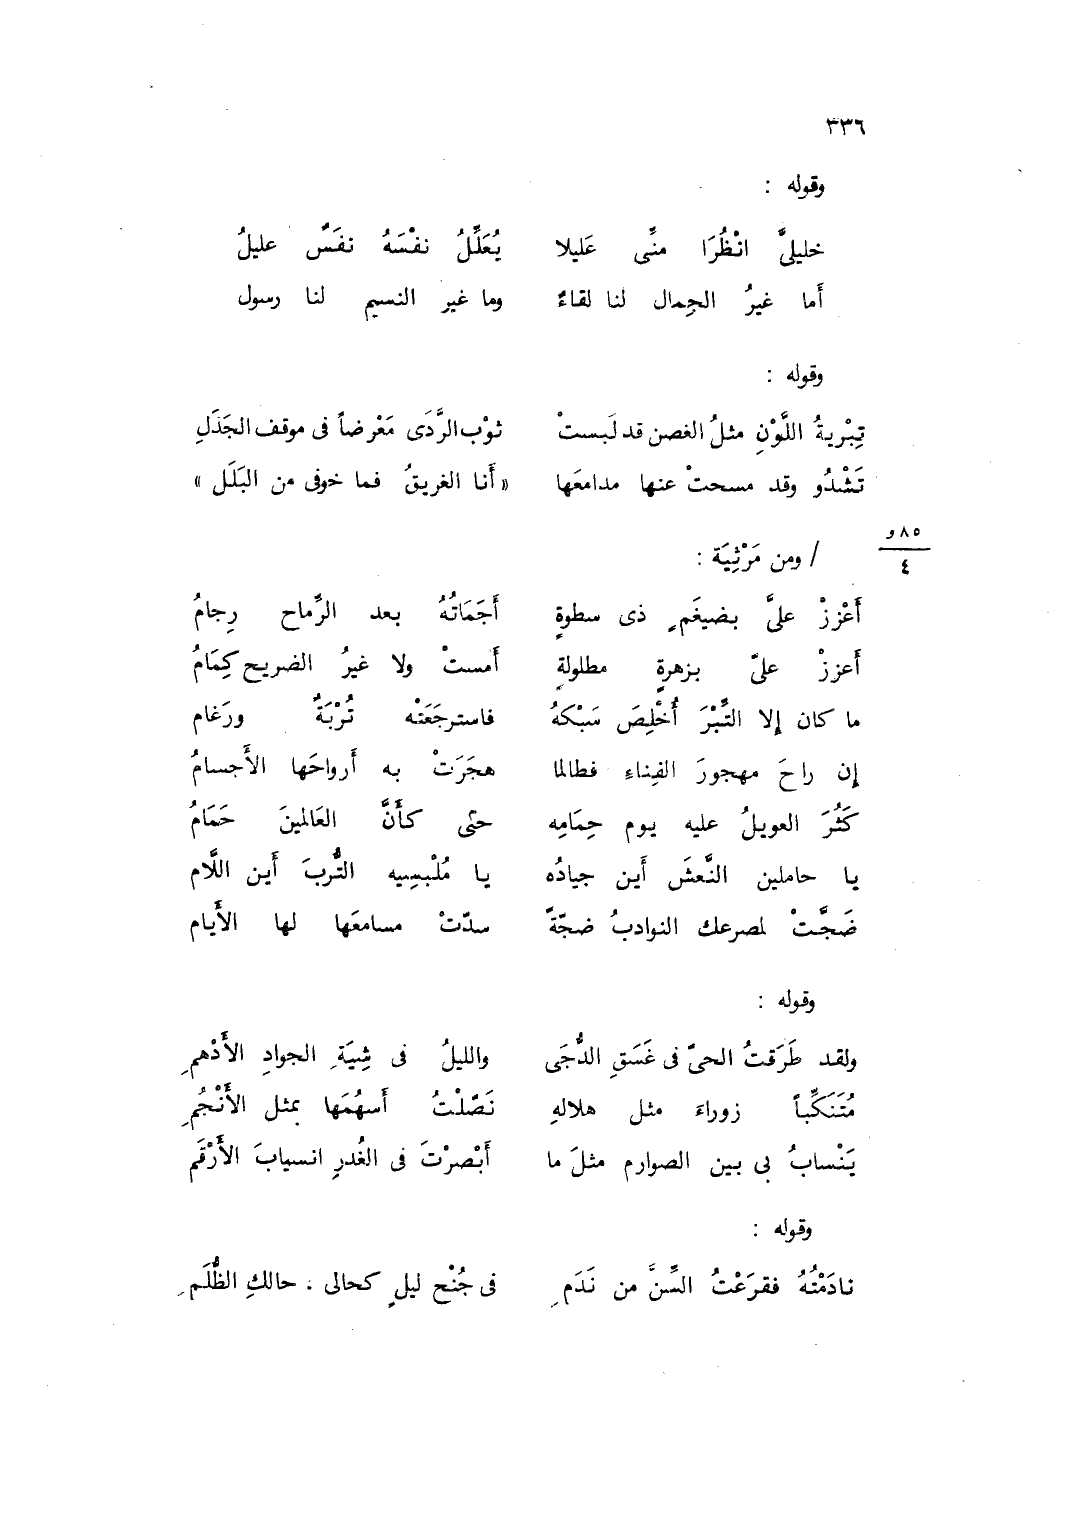 ٣٣٦
وقوله :
خليليَّ انْظُرَا منِّى عَليلا يُعَلِّلُ نفْسَهُ نفَسٌ عليلُ
أما غيرُ الجِمال لنا لقاءٌ وما غير النسيم لنا رسول
وقوله :
تِبْريةُ اللَّوْنِ مثلُ الغصن قد لَبستْ ثوْب الرَّدَى مَعْرضاً فى موقف الجَذَلِ
تَشْدُو وقد مسحتْ عنها مدامعَها « أنا الغريقُ فما خوفى من البَلَل »
٨٥ و
٤
/ ومن مَرْثِيَة :
أَعْززْ علىَّ بضيغَمٍ ذى سطوةٍ أَجَمَاتُهُ بعد الرِّماح رِجامُ
أَعززْ علىّ بزهرةٍ مطلولةٍ أمستْ ولا غيرُ الضريح كِمَامُ
ما كان إلا التِّبْرَ أُخْلِصَ سَبْكهُ فاسترجَعَتْه تُرْبَةٌ ورَغام
إن راحَ مهجورَ الفِناء فطالما هجَرَتْ به أرواحَها الأَجسامُ
كَثُرَ العويلُ عليه يوم حِمَامِه حتى كأنَّ العَالمينَ حَمَامُ
يا حاملين النَّعشَ أَين جيادُه يا مُلْبسِيه التُّربَ أَين اللَّام
ضَجَّتْ لمصرعك النوادبُ ضجّةً سدّتْ مسامعَها لها الأَيام
وقوله :
ولقد طَرَقتُ الحىّ فى غَسَقِ الدُّجَى والليلُ فى شِيَةِ الجوادِ الأَدْهمِ
مُتَنَكِّباً زوراءَ مثل هلالهِ نَصّلْتُ أَسهُمَها بمثل الأَنْجُمِ
يَنْسابُ بى بين الصوارم مثلَ ما أَبْصرْتَ فى الغُدرِ انسيابَ الأَرْقَمِ
وقوله :
نادَمْتُهُ فقرَعْتُ السِّنَّ من نَدَمٍ فى جُنْح ليلٍ كحالى . حالكِ الظُّلَمِ